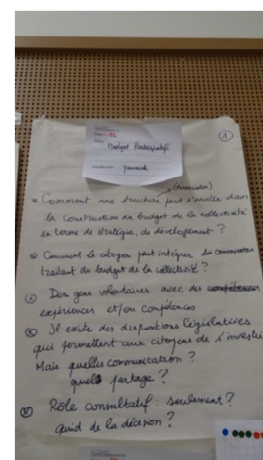 14
Budget Participatif
Yannick
1
(association)
Comment une structure peut s'insérer dans
la construction du budget de la collectivité
en terme de stratégie, de développement ?
Comment le citoyen peut intégrer les commissions
traitant du budget de la collectivité ?
Des gens volontaires avec des compétences
expériences et/ou compétences
Il existe des dispositions législatives
qui permettent aux citoyens de s'investir
Mais quelles communication ?
quels partage ?
Rôle consultatif : seulement ?
quid de la décision ?